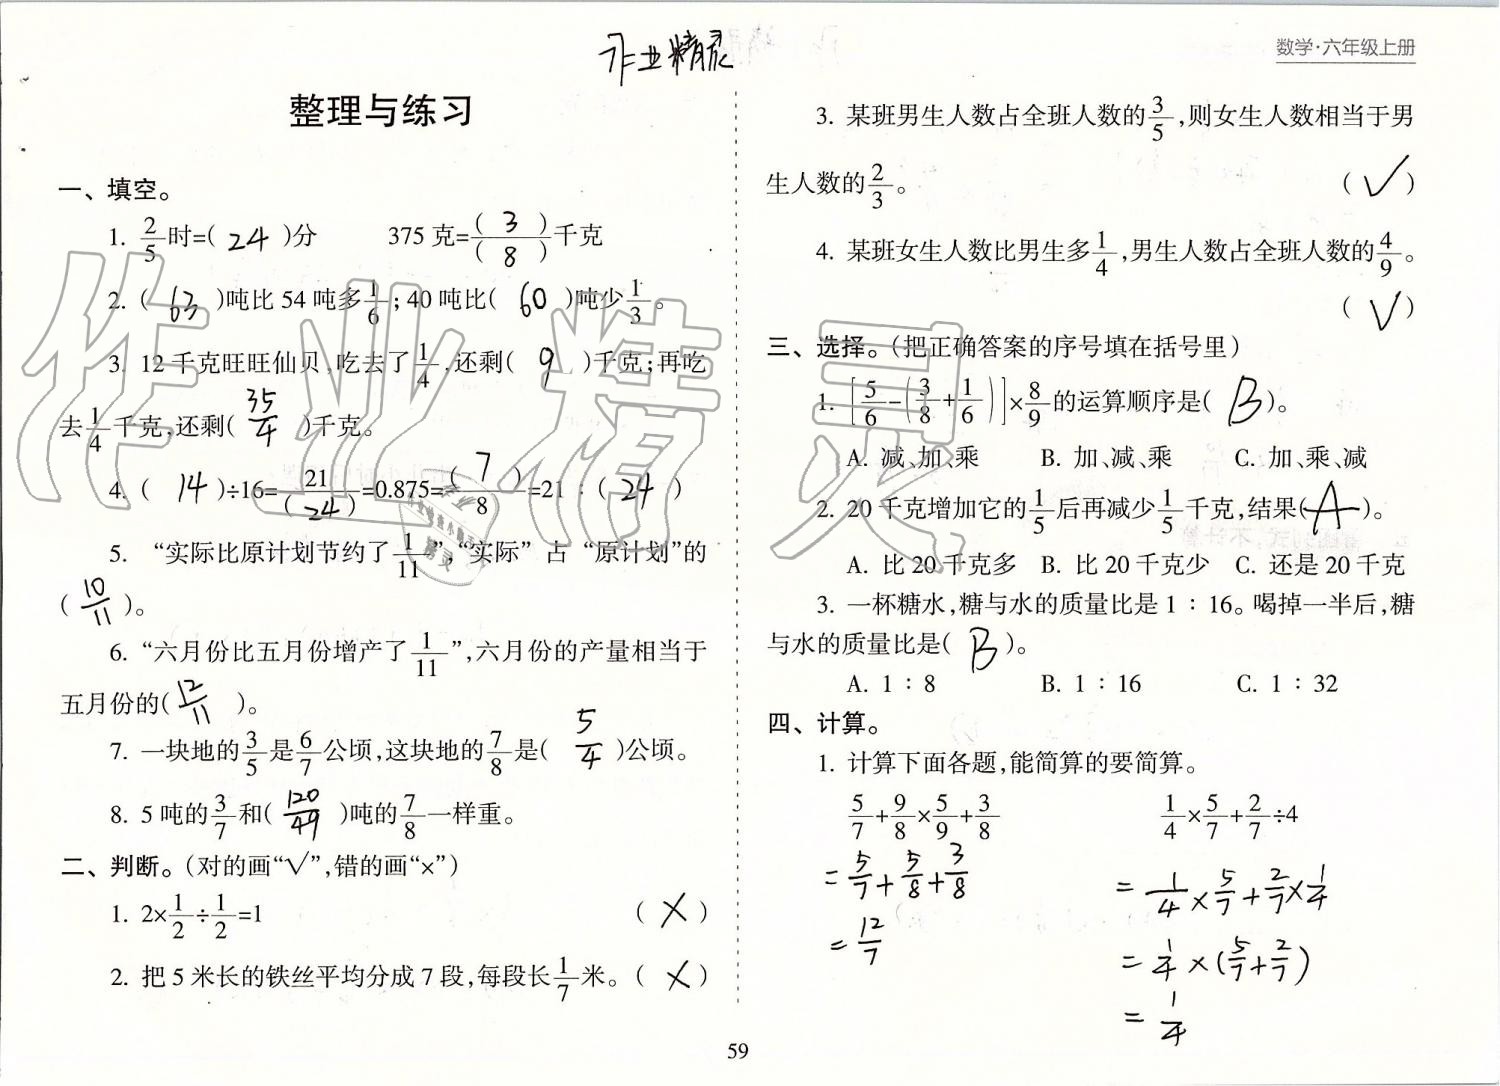 作业精灵
数学·六年级上册
整理与练习
一、填空。
1. 2/5时=( 24 )分 375克=( 3 )/( 8 )千克
2. ( 63 )吨比54吨多1/6;40吨比( 60 )吨少1/3。
3. 12千克旺旺仙贝,吃去了1/4,还剩( 9 )千克;再吃
去1/4千克,还剩( 35/4 )千克。
4. ( 14 )÷16=21/( 24 )=0.875=( 7 )/8=21∶( 24 )
5. “实际比原计划节约了1/11”,“实际”占“原计划”的
( 10/11 )。
6. “六月份比五月份增产了1/11”,六月份的产量相当于
五月份的( 12/11 )。
7. 一块地的3/5是6/7公顷,这块地的7/8是( 5/4 )公顷。
8. 5吨的3/7和( 120/49 )吨的7/8一样重。
二、判断。(对的画“√”,错的画“×”)
1. 2×1/2÷1/2=1 ( × )
2. 把5米长的铁丝平均分成7段,每段长1/7米。( × )
3. 某班男生人数占全班人数的3/5,则女生人数相当于男
生人数的2/3。 ( √ )
4. 某班女生人数比男生多1/4,男生人数占全班人数的4/9。
( √ )
三、选择。(把正确答案的序号填在括号里)
1. [5/6-(3/8+1/6)]×8/9的运算顺序是( B )。
A. 减、加、乘 B. 加、减、乘 C. 加、乘、减
2. 20千克增加它的1/5后再减少1/5千克,结果( A )。
A. 比20千克多 B. 比20千克少 C. 还是20千克
3. 一杯糖水,糖与水的质量比是1∶16。喝掉一半后,糖
与水的质量比是( B )。
A. 1∶8 B. 1∶16 C. 1∶32
四、计算。
1. 计算下面各题,能简算的要简算。
5/7+9/8×5/9+3/8 1/4×5/7+2/7÷4
=5/7+5/8+3/8 =1/4×5/7+2/7×1/4
=12/7 =1/4×(5/7+2/7)
=1/4
59
作业精灵